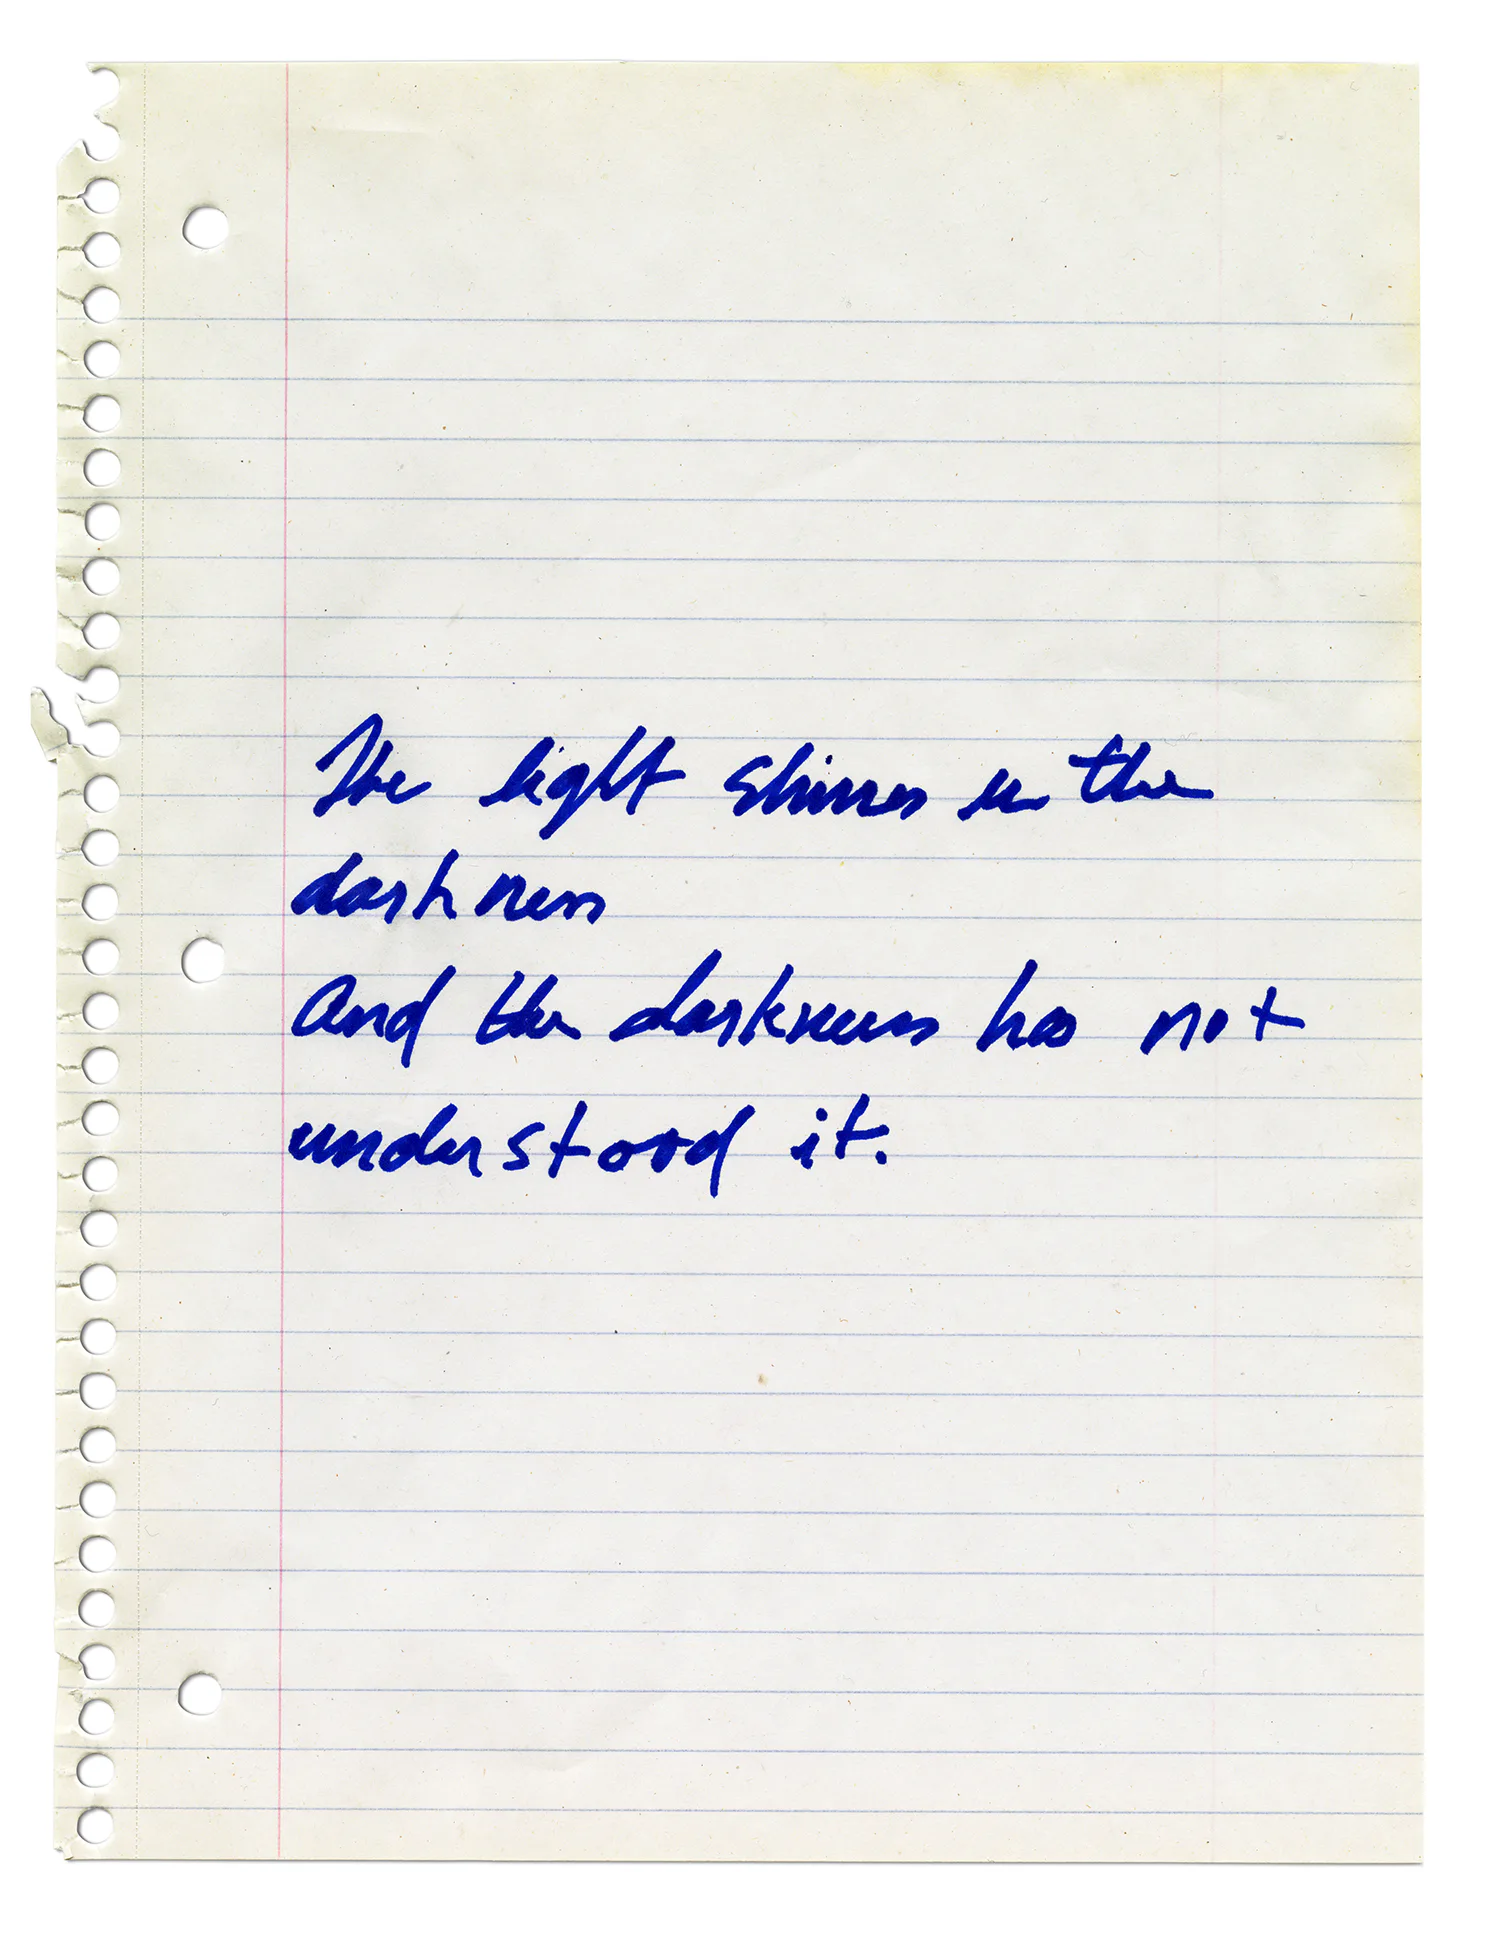 The light shines in the
darkness
And the darkness has not
understood it.